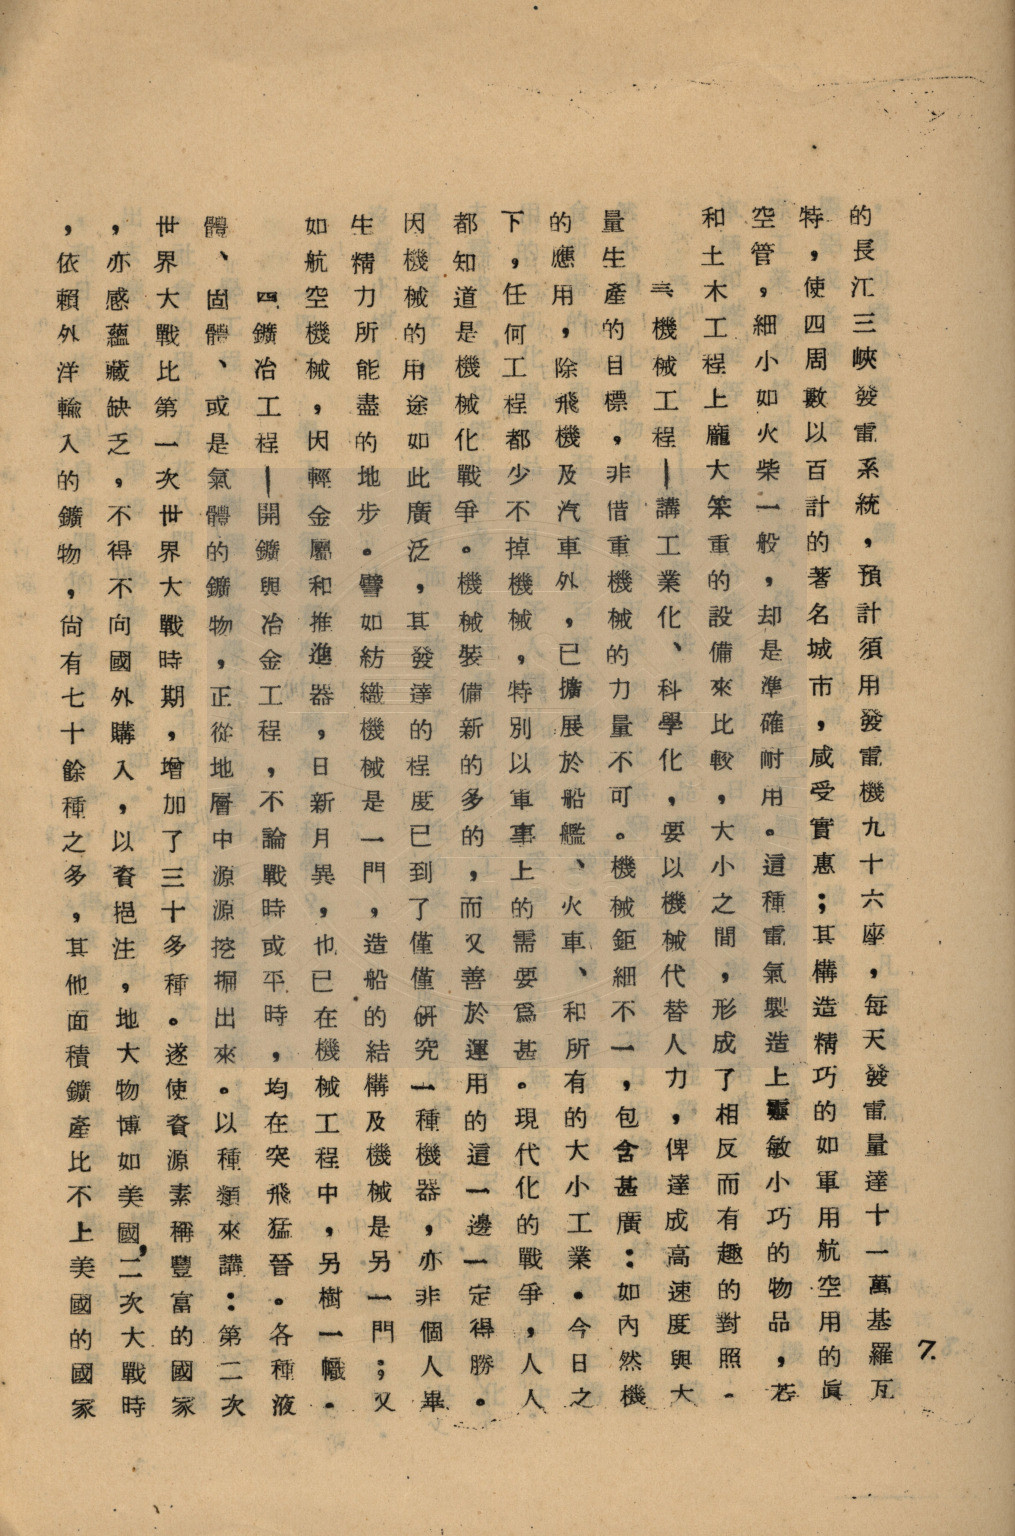 7.
的長江三峽發電系統，預計須用發電機九十六座，每天發電量達十一萬基羅瓦
特，使四周數以百計的著名城市，咸受實惠；其構造精巧的如軍用航空用的眞
空管，細小如火柴一般，却是準確耐用。這種電氣製造上靈敏小巧的物品，若
和土木工程上龐大笨重的設備來比較，大小之間，形成了相反而有趣的對照．
三、機械工程—講工業化、科學化，要以機械代替人力，俾達成高速度與大
量生產的目標，非借重機械的力量不可。機械鉅細不一，包含甚廣：如內然機
的應用，除飛機及汽車外，已擴展於船艦、火車、和所有的大小工業。今日之
下，任何工程都少不掉機械，特別以軍事上的需要爲甚。現代化的戰爭，人人
都知道是機械化戰爭。機械裝備新的多的，而又善於運用的這一邊一定得勝。
因機械的用途如此廣泛，其發達的程度已到了僅僅研究一種機器，亦非個人畢
生精力所能盡的地步。譬如紡織機械是一門，造船的結構及機械是另一門；又
如航空機械，因輕金屬和推進器，日新月異，也已在機械工程中，另樹一幟．
四、鑛冶工程—開鑛與冶金工程，不論戰時或平時，均在突飛猛晉。各種液
體、固體、或是氣體的鑛物，正從地層中源源挖掘出來。以種類來講：第二次
世界大戰比第一次世界大戰時期，增加了三十多種。遂使資源素稱豐富的國家
，亦感蘊藏缺乏，不得不向國外購入，以資挹注，地大物博如美國，二次大戰時
，依賴外洋輸入的鑛物，尙有七十餘種之多，其他面積鑛產比不上美國的國家